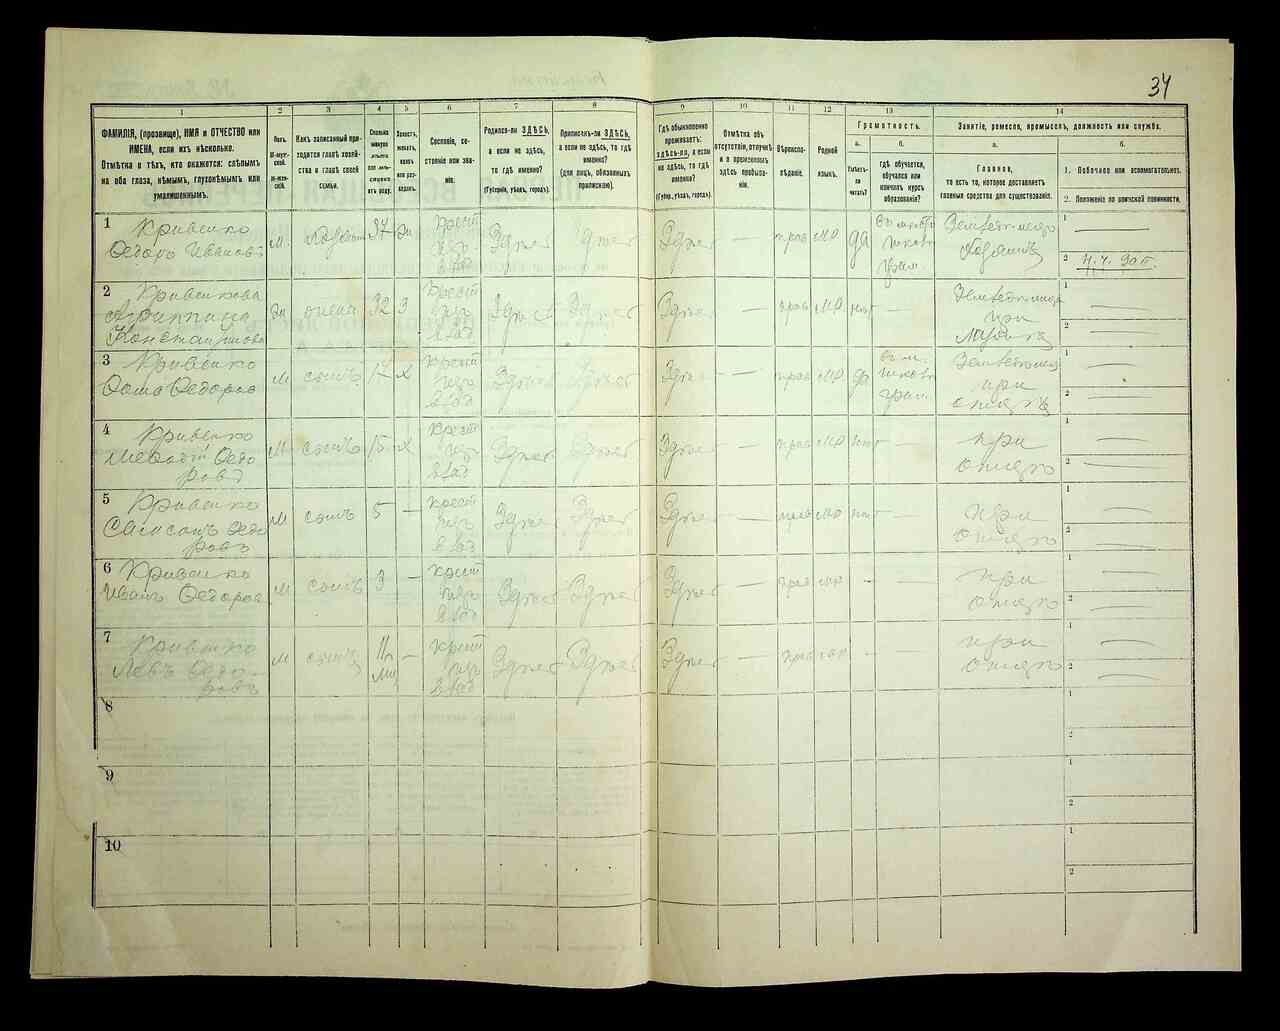 34
1 2 3 4 5 6 7 8 9 10 11 12 13 14
ФАМИЛІЯ, (прозвище), ИМЯ и ОТЧЕСТВО или
ИМЕНА, если ихъ нѣсколько.
Отмѣтка о тѣхъ, кто окажется: слѣпымъ
на оба глаза, нѣмымъ, глухонѣмымъ или
умалишеннымъ.
Полъ.
М-муж-
ской.
Ж-жен-
скій.
Какъ записанный при-
ходится главѣ хозяй-
ства и главѣ своей
семьи.
Сколько
минуло
лѣтъ
или мѣ-
сяцевъ
отъ роду.
Холостъ,
женатъ,
вдовъ
или раз-
веденъ.
Сословіе, со-
стояніе или зва-
ніе.
Родился-ли ЗДѢСЬ,
а если не здѣсь,
то гдѣ именно?
(Губернія, уѣздъ, городъ).
Приписанъ-ли ЗДѢСЬ,
а если не здѣсь, то гдѣ
именно?
(для лицъ, обязанныхъ
припискою).
Гдѣ обыкновенно
проживаетъ:
здѣсь-ли, а если
не здѣсь, то гдѣ
именно?
(Губер., уѣздъ, городъ).
Отмѣтка объ
отсутствіи, отлучкѣ
и о временномъ
здѣсь пребыва-
ніи.
Вѣроиспо-
вѣданіе.
Родной
языкъ.
Грамотность.
а.
Умѣетъ-
ли
читать?
б.
гдѣ обучается,
обучался или
кончилъ курсъ
образованія?
Занятіе, ремесло, промыселъ, должность или служба.
а.
Главное,
то есть то, которое доставляетъ
главныя средства для существованія.
б.
1. Побочное или вспомогательное.
2. Положеніе по воинской повинности.
1 Кривенко
Ѳедоръ Ивановъ
м. хозяинъ 37 жн
крест
изъ
влад
Здѣсь Здѣсь Здѣсь — прав МР да
Земледѣлецъ
Хозяинъ
1 —
2
2 Кривенкова
Агриппина
Константинова
жн жена 32 З
крест
изъ
влад
Здѣсь Здѣсь Здѣсь — прав МР нѣт —
1 —
2 —
3 Кривенко
Ѳома Ѳедоровъ
м сынъ 17 х
крест
изъ
влад
Здѣсь Здѣсь Здѣсь — прав МР да
при
отцѣ
1 —
2 —
4 Кривенко
Меѳодій Ѳедо
ровъ
м сынъ 15 х
крест
изъ
влад
Здѣсь Здѣсь Здѣсь — прав МР нѣт —
при
отцѣ
1 —
2 —
5 Кривенко
Самсонъ Ѳедо
ровъ
м сынъ 5 —
крест
изъ
влад
Здѣсь Здѣсь Здѣсь — прав МР нѣт —
при
отцѣ
1 —
2 —
6 Кривенко
Иванъ Ѳедоровъ
м сынъ 3 —
крест
изъ
влад
Здѣсь Здѣсь Здѣсь — прав МР — —
при
отцѣ
1 —
2 —
7 Кривенко
Левъ Ѳедо-
ровъ
м сынъ 11 м —
крест
изъ
влад
Здѣсь Здѣсь Здѣсь — прав МР —
при
отцѣ
1 —
2 —
8
1
2
9
1
2
10
1
2